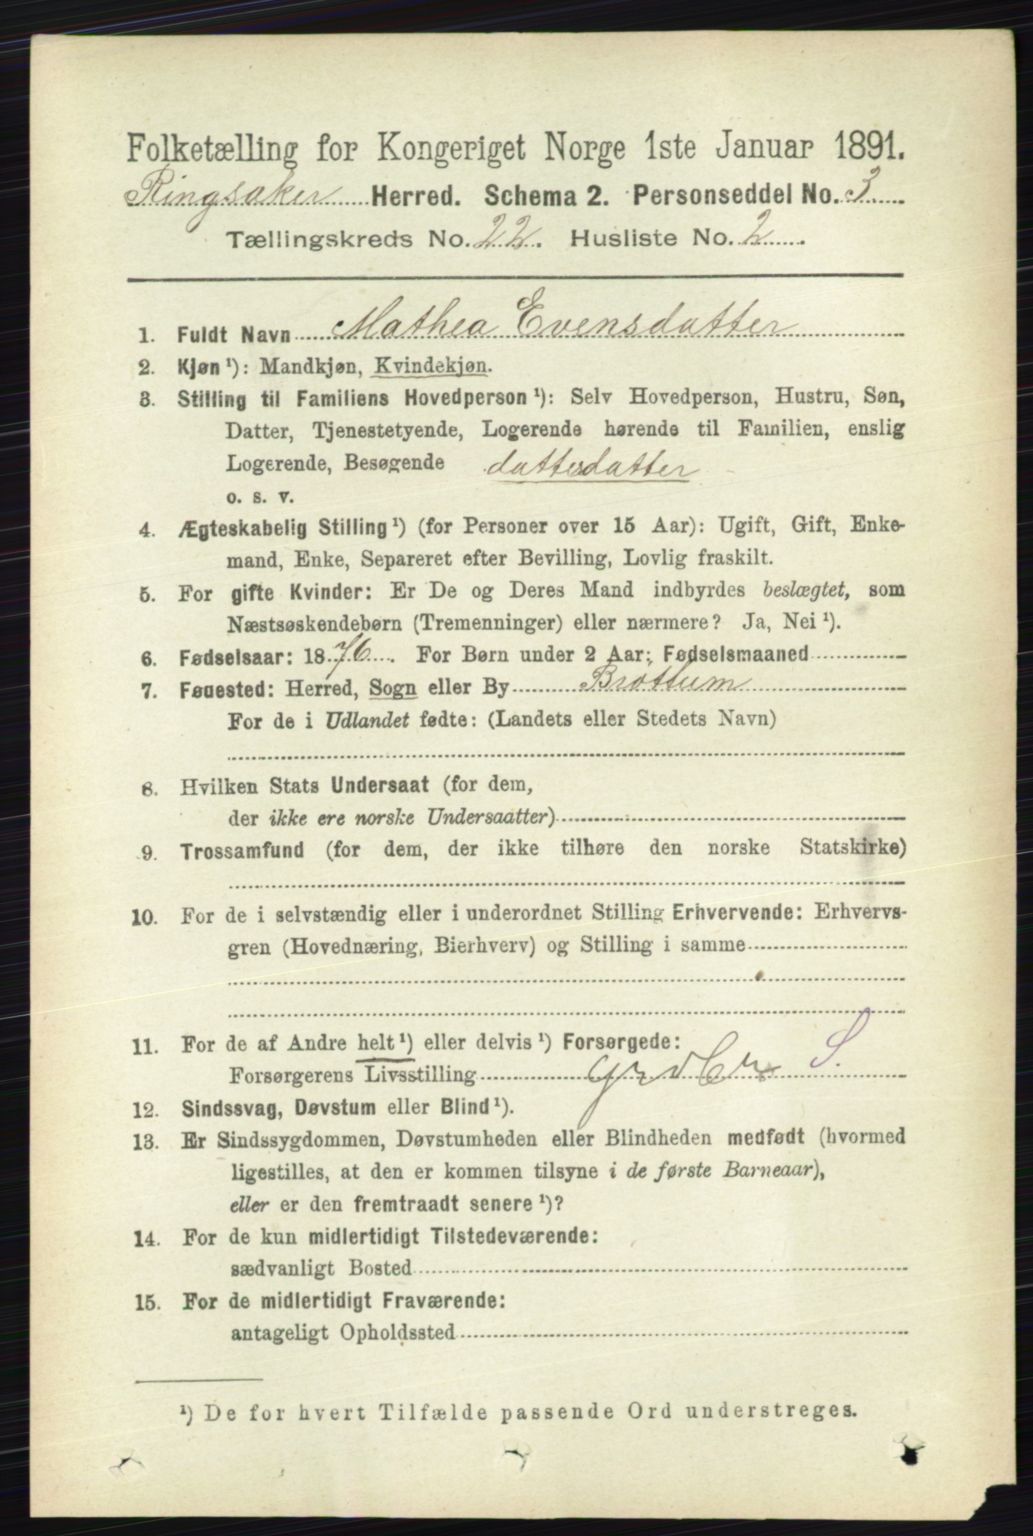 Folketælling for Kongeriget Norge 1ste Januar 1891.
Ringsaker Herred. Schema 2. Personseddel No. 3
Tællingskreds No. 22. Husliste No. 2
1. Fuldt Navn Mathea Evensdatter
2. Kjøn ¹): Mandkjøn, Kvindekjøn.
3. Stilling til Familiens Hovedperson ¹): Selv Hovedperson, Hustru, Søn,
Datter, Tjenestetyende, Logerende hørende til Familien, enslig
Logerende, Besøgende dattesdatter
o. s. v.
4. Ægteskabelig Stilling ¹) (for Personer over 15 Aar): Ugift, Gift, Enke-
mand, Enke, Separeret efter Bevilling, Lovlig fraskilt.
5. For gifte Kvinder: Er De og Deres Mand indbyrdes beslægtet, som
Næstsøskendebørn (Tremenninger) eller nærmere? Ja, Nei ¹).
6. Fødselsaar: 1876. For Børn under 2 Aar: Fødselsmaaned
7. Føuested: Herred, Sogn eller By Brøttum
For de i Udlandet fødte: (Landets eller Stedets Navn)
8. Hvilken Stats Undersaat (for dem,
der ikke ere norske Undersaatter)
9. Trossamfund (for dem, der ikke tilhøre den norske Statskirke)
10. For de i selvstændig eller i underordnet Stilling Erhvervende: Erhvervs-
gren (Hovednæring, Bierhverv) og Stilling i samme
11. For de af Andre helt ¹) eller delvis ¹) Forsørgede:
Forsørgerens Livsstilling S.
12. Sindssvag, Døvstum eller Blind ¹).
13. Er Sindssygdommen, Døvstumheden eller Blindheden medfødt (hvormed
ligestilles, at den er kommen tilsyne i de første Barneaar),
eller er den fremtraadt senere ¹)?
14. For de kun midlertidigt Tilstedeværende:
sædvanligt Bosted
15. For de midlertidigt Fraværende:
antageligt Opholdssted
¹) De for hvert Tilfælde passende Ord understreges.